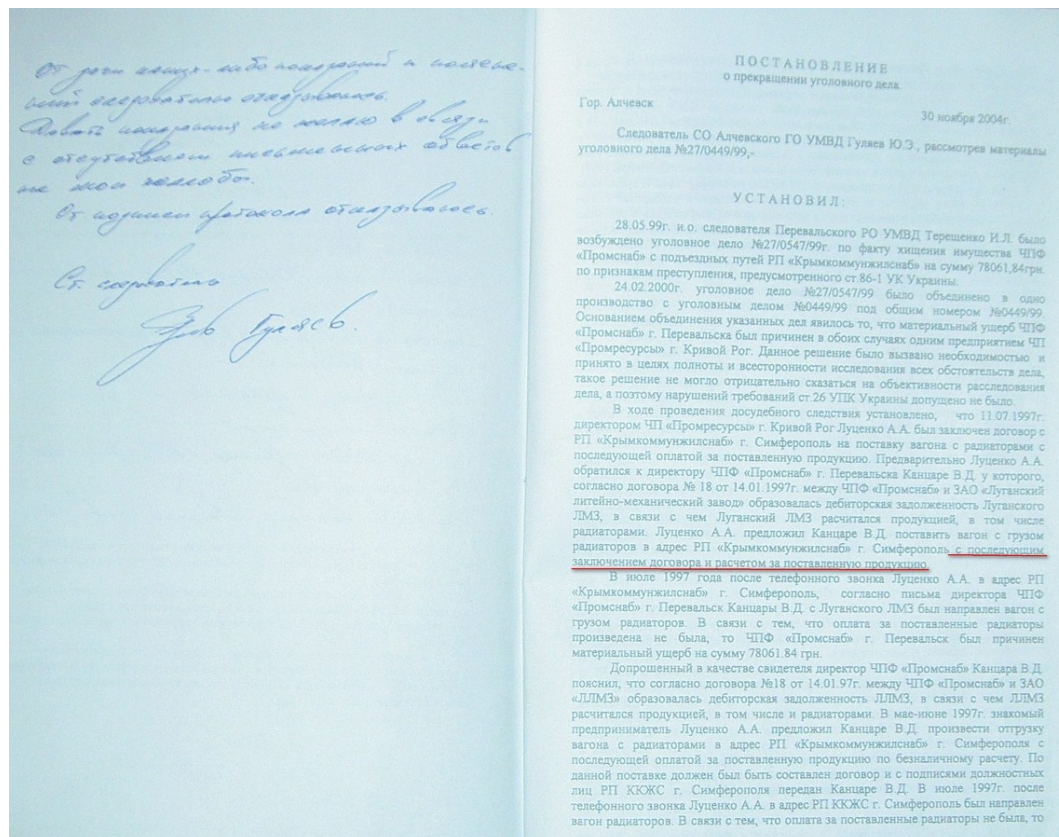 От дачи каких-либо показаний и поясне-
ний следователю отказываюсь.
Давать показания не желаю в связи
с отсутствием письменных ответов
на мои жалобы.
От подписи протокола отказываюсь.
Ст. следователь
Гуляев.
ПОСТАНОВЛЕНИЕ
о прекращении уголовного дела.
Гор. Алчевск
30 ноября 2004г.
Следователь СО Алчевского ГО УМВД Гуляев Ю.Э., рассмотрев материалы
уголовного дела №27/0449/99,-
УСТАНОВИЛ:
28.05.99г. и.о. следователя Перевальского РО УМВД Терещенко И.Л. было
возбуждено уголовное дело №27/0547/99г. по факту хищения имущества ЧПФ
«Промснаб» с подъездных путей РП «Крымкоммунжилснаб» на сумму 78061,84грн.
по признакам преступления, предусмотренного ст.86-1 УК Украины.
24.02.2000г. уголовное дело №27/0547/99 было объединено в одно
производство с уголовным делом №0449/99 под общим номером №0449/99.
Основанием объединения указанных дел явилось то, что материальный ущерб ЧПФ
«Промснаб» г. Перевальска был причинен в обоих случаях одним предприятием ЧП
«Промресурсы» г. Кривой Рог. Данное решение было вызвано необходимостью и
принято в целях полноты и всесторонности исследования всех обстоятельств дела,
такое решение не могло отрицательно сказаться на объективности расследования
дела, а поэтому нарушений требований ст.26 УПК Украины допущено не было.
В ходе проведения досудебного следствия установлено, что 11.07.1997г.
директором ЧП «Промресурсы» г. Кривой Рог Луценко А.А. был заключен договор с
РП «Крымкоммунжилснаб» г. Симферополь на поставку вагона с радиаторами с
последующей оплатой за поставленную продукцию. Предварительно Луценко А.А.
обратился к директору ЧПФ «Промснаб» г. Перевальска Канцаре В.Д. у которого,
согласно договора № 18 от 14.01.1997г. между ЧПФ «Промснаб» и ЗАО «Луганский
литейно-механический завод» образовалась дебиторская задолженность Луганского
ЛМЗ, в связи с чем Луганский ЛМЗ расчитался продукцией, в том числе
радиаторами. Луценко А.А. предложил Канцаре В.Д. поставить вагон с грузом
радиаторов в адрес РП «Крымкоммунжилснаб» г. Симферополь с последующим
заключением договора и расчетом за поставленную продукцию.
В июле 1997 года после телефонного звонка Луценко А.А. в адрес РП
«Крымкоммунжилснаб» г. Симферополь, согласно письма директора ЧПФ
«Промснаб» г. Перевальск Канцары В.Д. с Луганского ЛМЗ был направлен вагон с
грузом радиаторов. В связи с тем, что оплата за поставленные радиаторы
произведена не была, то ЧПФ «Промснаб» г. Перевальск был причинен
материальный ущерб на сумму 78061.84 грн.
Допрошенный в качестве свидетеля директор ЧПФ «Промснаб» Канцара В.Д.
пояснил, что согласно договора №18 от 14.01.97г. между ЧПФ «Промснаб» и ЗАО
«ЛЛМЗ» образовалась дебиторская задолженность ЛЛМЗ, в связи с чем ЛЛМЗ
расчитался продукцией, в том числе и радиаторами. В мае-июне 1997г. знакомый
предприниматель Луценко А.А. предложил Канцаре В.Д. произвести отгрузку
вагона с радиаторами в адрес РП «Крымкоммунжилснаб» г. Симферополя с
последующей оплатой за поставленную продукцию по безналичному расчету. По
данной поставке должен был быть составлен договор и с подписями должностных
лиц РП ККЖС г. Симферополя передан Канцаре В.Д. В июле 1997г. после
телефонного звонка Луценко А.А. в адрес РП ККЖС г. Симферополь был направлен
вагон радиаторов. В связи с тем, что оплата за поставленные радиаторы не была, то